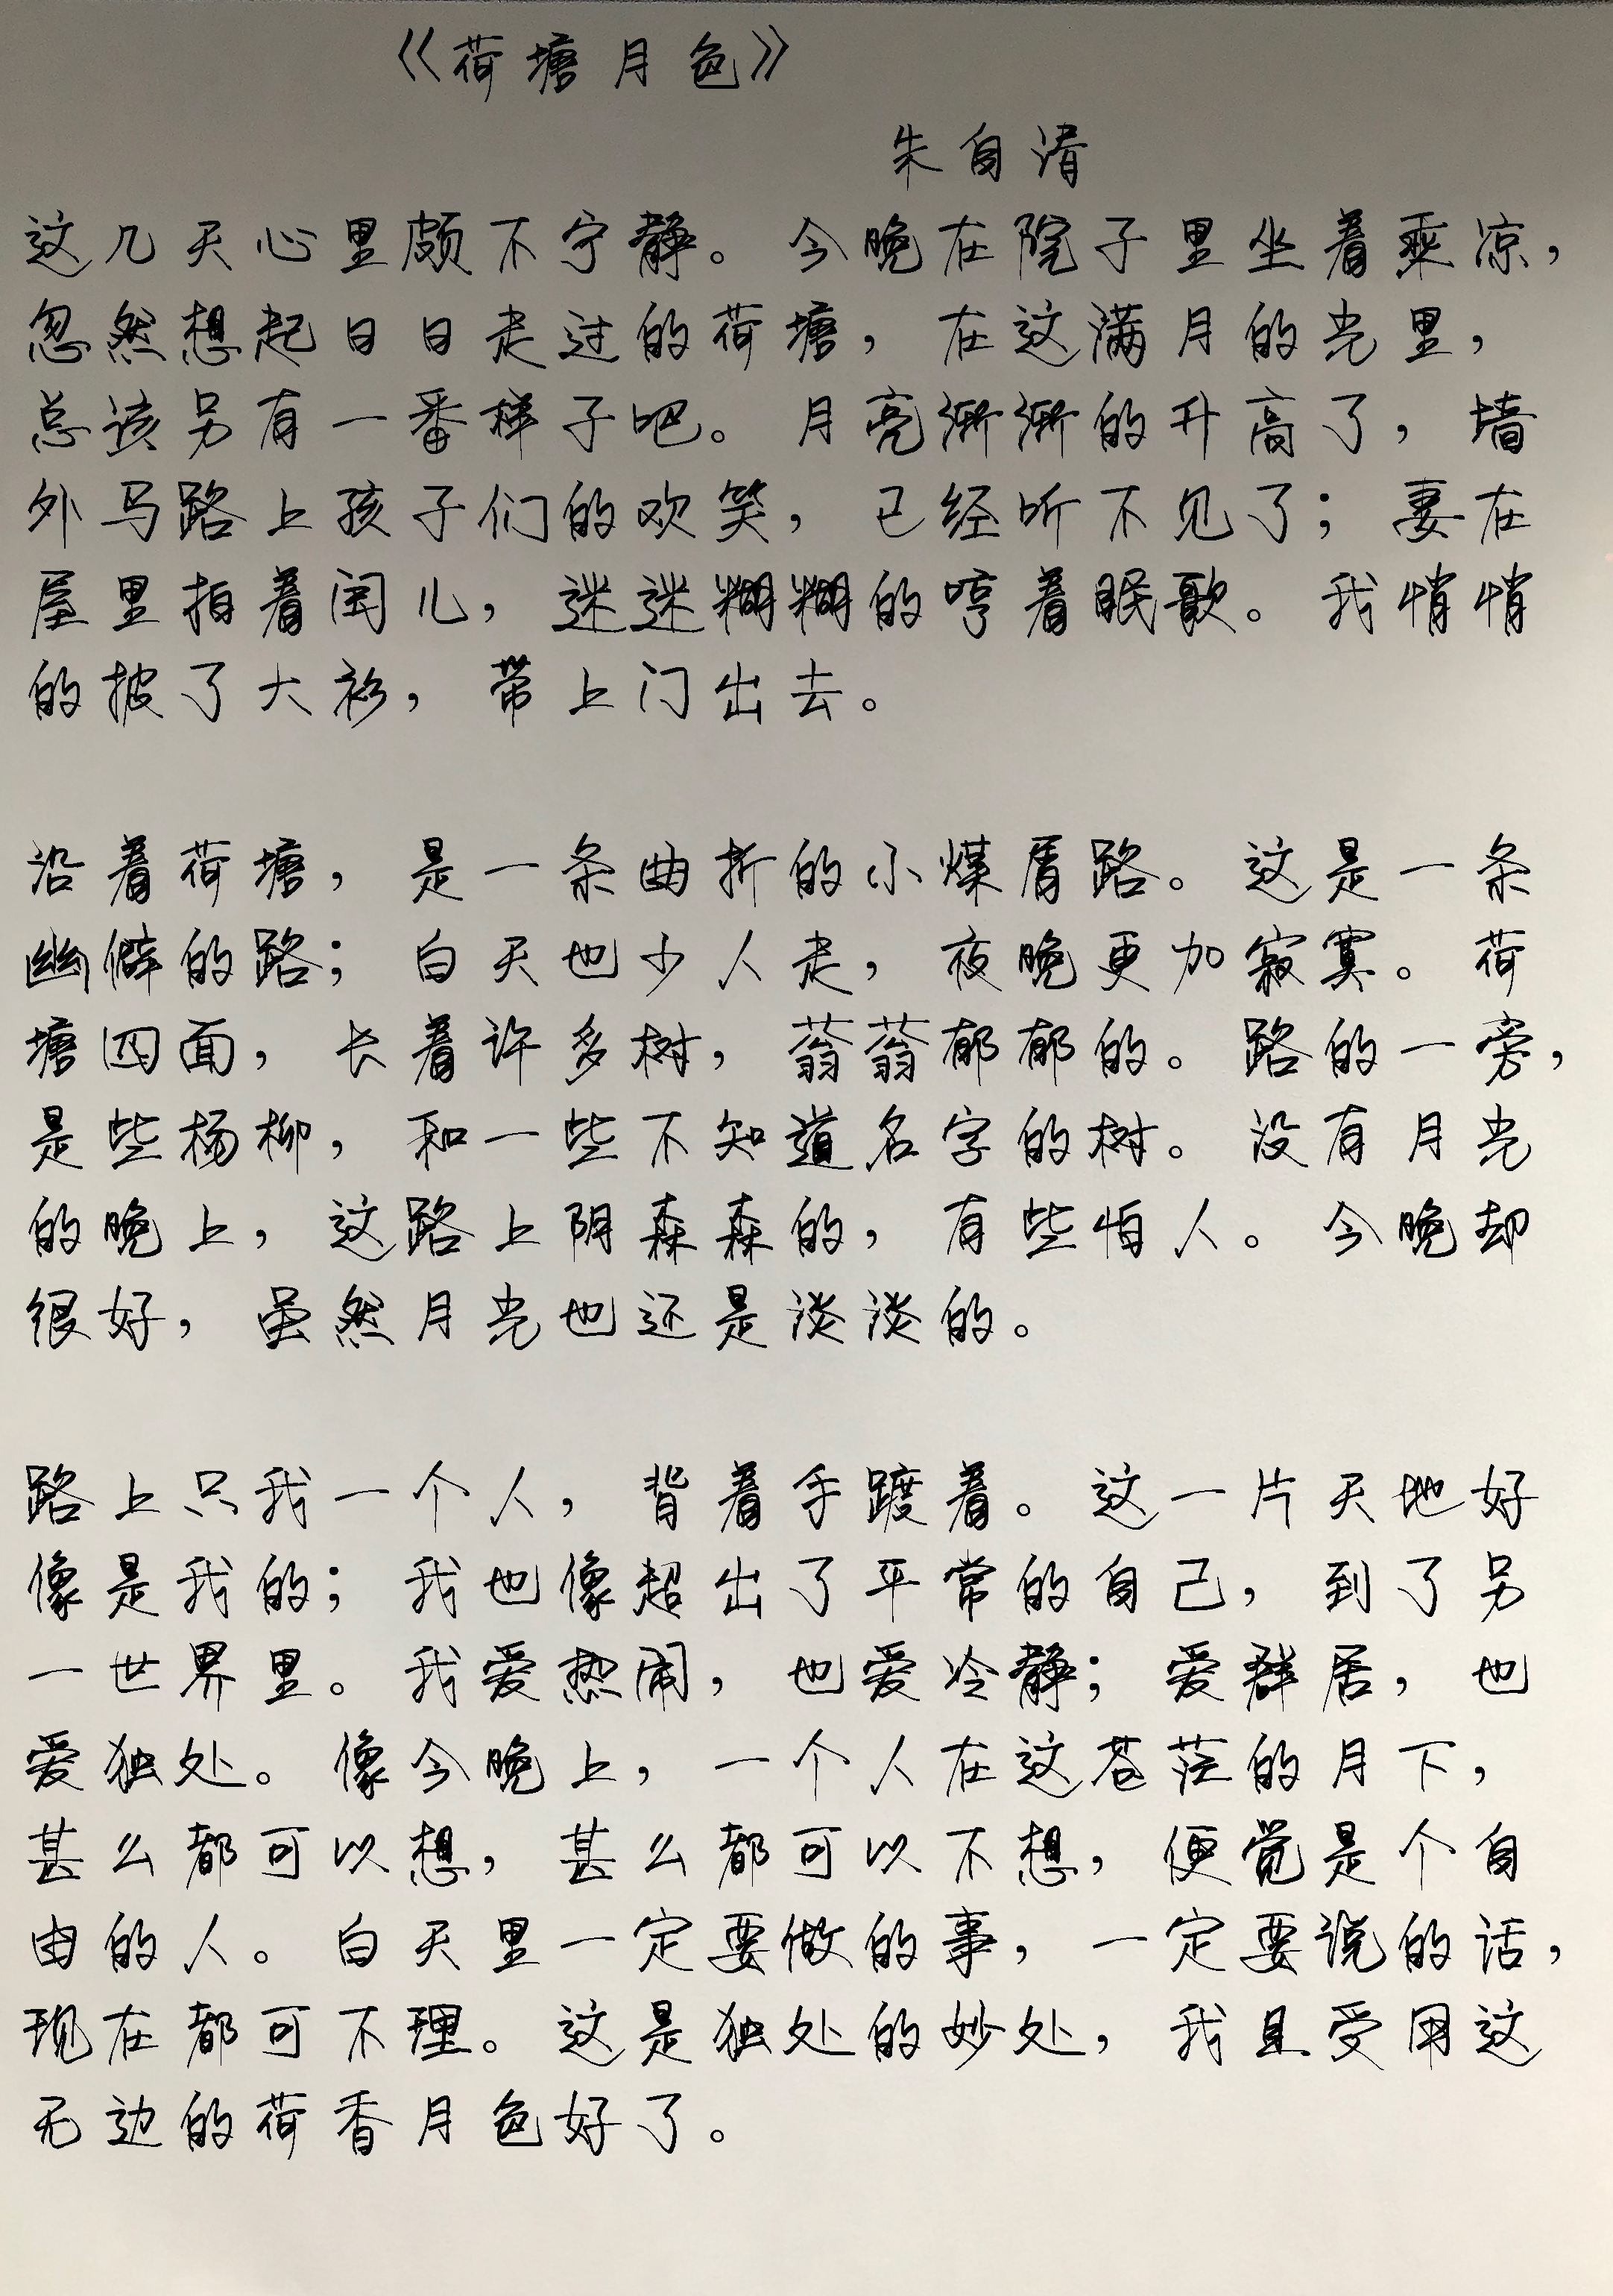 《荷塘月色》
朱自清
这几天心里颇不宁静。今晚在院子里坐着乘凉，
忽然想起日日走过的荷塘，在这满月的光里，
总该另有一番样子吧。月亮渐渐的升高了，墙
外马路上孩子们的欢笑，已经听不见了；妻在
屋里拍着闰儿，迷迷糊糊的哼着眠歌。我悄悄
的披了大衫，带上门出去。
沿着荷塘，是一条曲折的小煤屑路。这是一条
幽僻的路；白天也少人走，夜晚更加寂寞。荷
塘四面，长着许多树，蓊蓊郁郁的。路的一旁，
是些杨柳，和一些不知道名字的树。没有月光
的晚上，这路上阴森森的，有些怕人。今晚却
很好，虽然月光也还是淡淡的。
路上只我一个人，背着手踱着。这一片天地好
像是我的；我也像超出了平常的自己，到了另
一世界里。我爱热闹，也爱冷静；爱群居，也
爱独处。像今晚上，一个人在这苍茫的月下，
甚么都可以想，甚么都可以不想，便觉是个自
由的人。白天里一定要做的事，一定要说的话，
现在都可不理。这是独处的妙处，我且受用这
无边的荷香月色好了。